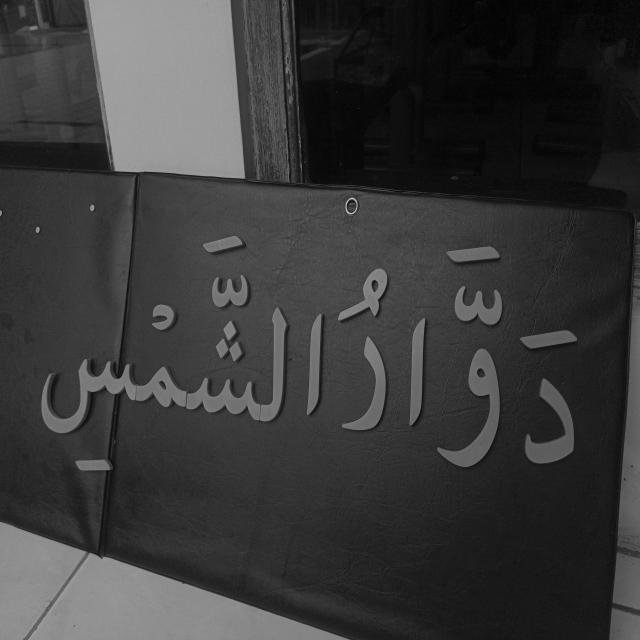 دَوَّارُ الشَّمْسِ